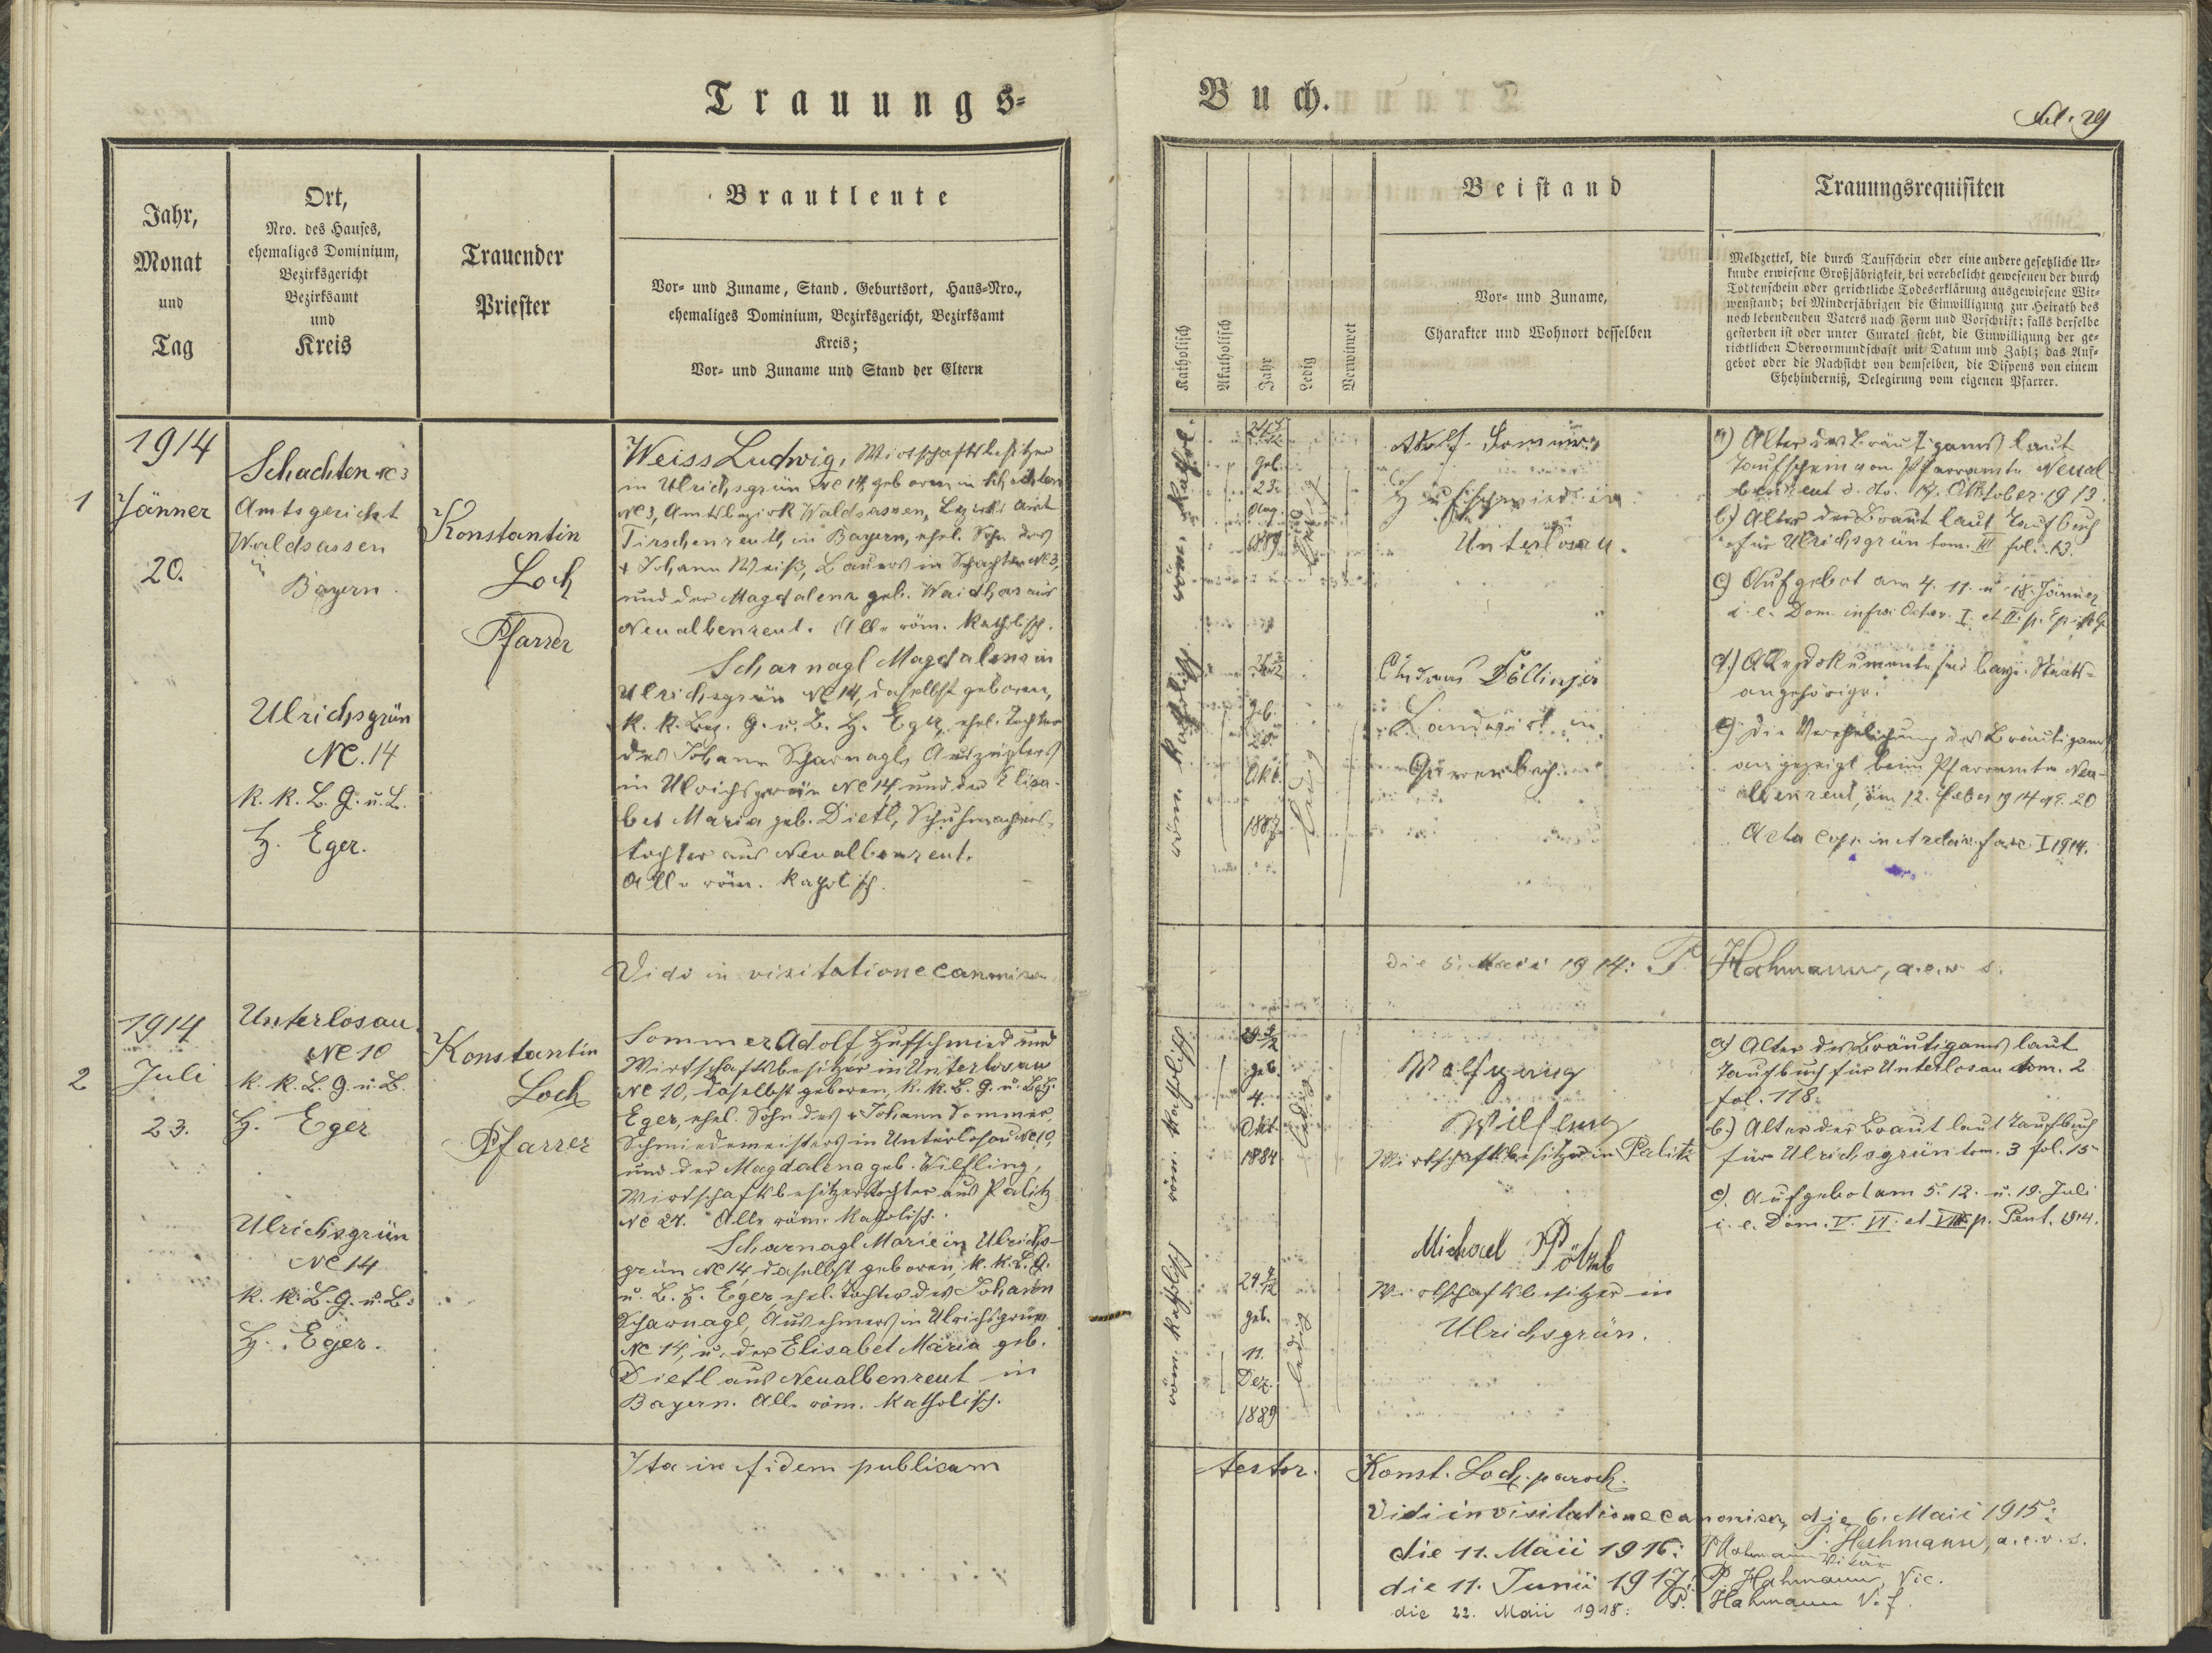 Trauungs=
Buch.
fol. 29
Jahr,
Monat
und
Tag
Ort,
Nro. des Hauses,
ehemaliges Dominium,
Bezirksgericht
Bezirksamt
und
Kreis
Trauender
Priester
Brautleute
Vor- und Zuname, Stand, Geburtsort, Haus-Nro.,
ehemaliges Dominium, Bezirksgericht, Bezirksamt
Kreis;
Vor- und Zuname und Stand der Eltern
Katholisch
Akatholisch
Jahr
Ledig
Verwitwet
Beistand
Vor- und Zuname,
Charakter und Wohnort desselben
Trauungsrequisiten
Meldzettel, die durch Taufschein oder eine andere gesetzliche Ur-
kunde erwiesene Großjährigkeit, bei verehelicht gewesenen der durch
Todtenschein oder gerichtliche Todeserklärung ausgewiesene Wit-
wenstand; bei Minderjährigen die Einwilligung zur Heirath des
noch lebendenden Vaters nach Form und Vorschrift; falls derselbe
gestorben ist oder unter Curatel steht, die Einwilligung der ge-
richtlichen Obervormundschaft mit Datum und Zahl; das Auf-
gebot oder die Nachsicht von demselben, die Dispens von einem
Ehehinderniß, Delegirung vom eigenen Pfarrer.
1
1914
Jänner
20.
Schachten NC 3
Amtsgericht
Waldsassen
in
Bayern.
Ulrichsgrün
NC. 14
K. K. B. G. u. B.
H. Eger.
Konstantin
Loch
Pfarrer
Weiss Ludwig, Wirtschaftsbesitzer
in Ulrichsgrün NC 14, geboren in Schachten
NC 3, Amtsbezirk Waldsassen, Bezirksamt
Tirschenreuth, in Bayern, ehel. Sohn des
† Johann Weiß, Bauers in Schachten NC 3,
und der Magdalena geb. Waidhas aus
Neualbenreut. Alle röm. Katholisch.
Scharnagl Magdalena in
Ulrichsgrün NC 14, daselbst geboren,
K. K. Bez. G. u. B. H. Eger, ehel. Tochter
des Johann Scharnagl, Auszüglers
in Ulrichsgrün NC 14, und der Elisa-
bet Maria geb. Dietl, Schuhmachers-
tochter aus Neualbenreut.
Alle röm. Katholisch.
röm. Kathol.
geb.
23.
Aug.
1889
ledig
röm. Katholisch
geb.
20.
Okt.
1887
ledig
Adolf Sommer
Hufschmied in
Unterlosau.
Andreas Döllinger
Landwirt in
a) Alter des Bräutigams laut
Taufschein vom Pfarramte Neual-
benreut d. dto. 17. Oktober 1913.
b) Alter der Braut laut Taufbuch
für Ulrichsgrün tom. III fol. 13.
c) Aufgebot am 4. 11. u. 18. Jänner
i. e. Dom. infra Octav. I. et II. p. Epiph.
d.) Alle Dokumente sub bayr. Staats-
angehörige.
e) Die Verehelichung des Bräutigams
angezeigt beim Pfarramte Neu-
albenreut, am 12. Feber 1914 NE. 20
Acta cop. in Archiv. fasc. I 1914.
Vidi in visitatione canonica
die 5. Maii 1914: P. Hahmann, a.e.v.s.
2
1914
Juli
23.
Unterlosau
NC 10
K. K. B. G. u. B.
H. Eger
Ulrichsgrün
NC 14
K. K. B. G. u. B.
H. Eger.
Konstantin
Loch
Pfarrer
Sommer Adolf Hufschmied und
Wirtschaftsbesitzer in Unterlosau
NC 10, daselbst geboren, K. K. B. G. u. B. H.
Eger, ehel. Sohn des † Johann Sommer,
Schmiedemeisters in Unterlosau NC 10,
und der Magdalena geb. Wilfling,
Wirtschaftsbesitzerstochter aus Palitz
NC 24. Alle röm. Katholisch.
Scharnagl Marie in Ulrichs-
grün NC 14, daselbst geboren, K. K. B. G.
u. B. H. Eger, ehel. Tochter des Johann
Scharnagl, Ausnehmers in Ulrichsgrün
NC 14, u. der Elisabet Maria geb.
Dietl aus Neualbenreut in
Bayern. Alle röm. Katholisch.
röm. Katholisch
29 9/12
geb.
4.
Okt.
1884
ledig
röm. Katholisch
24 7/12
geb.
11.
Dez.
1889
ledig
Wolfgang
Wilfling
Wirtschaftsbesitzer in Palitz
Michael Pötzl
Wirtschaftsbesitzer in
Ulrichsgrün.
a) Alter des Bräutigams laut
Taufbuch für Unterlosau tom. 2
fol. 118.
b.) Alter der Braut laut Taufbuch
für Ulrichsgrün tom. 3 fol. 15
c). Aufgebot am 5. 12. u. 19. Juli
i. e. Dom. V. VI. et VII. p. Pent. 1914.
Ita in fidem publicam
testor. Konst. Loch, paroch.
Vidi in visitatione canonica, die 6. Maii 1915:
P. Hahmann, a.e.v.s.
die 11. Maii 1916: P. Hahmann Vikär
die 11. Junii 1917: P. Hahmann, Vic.
die 22. Maii 1918: P. Hahmann V. f.